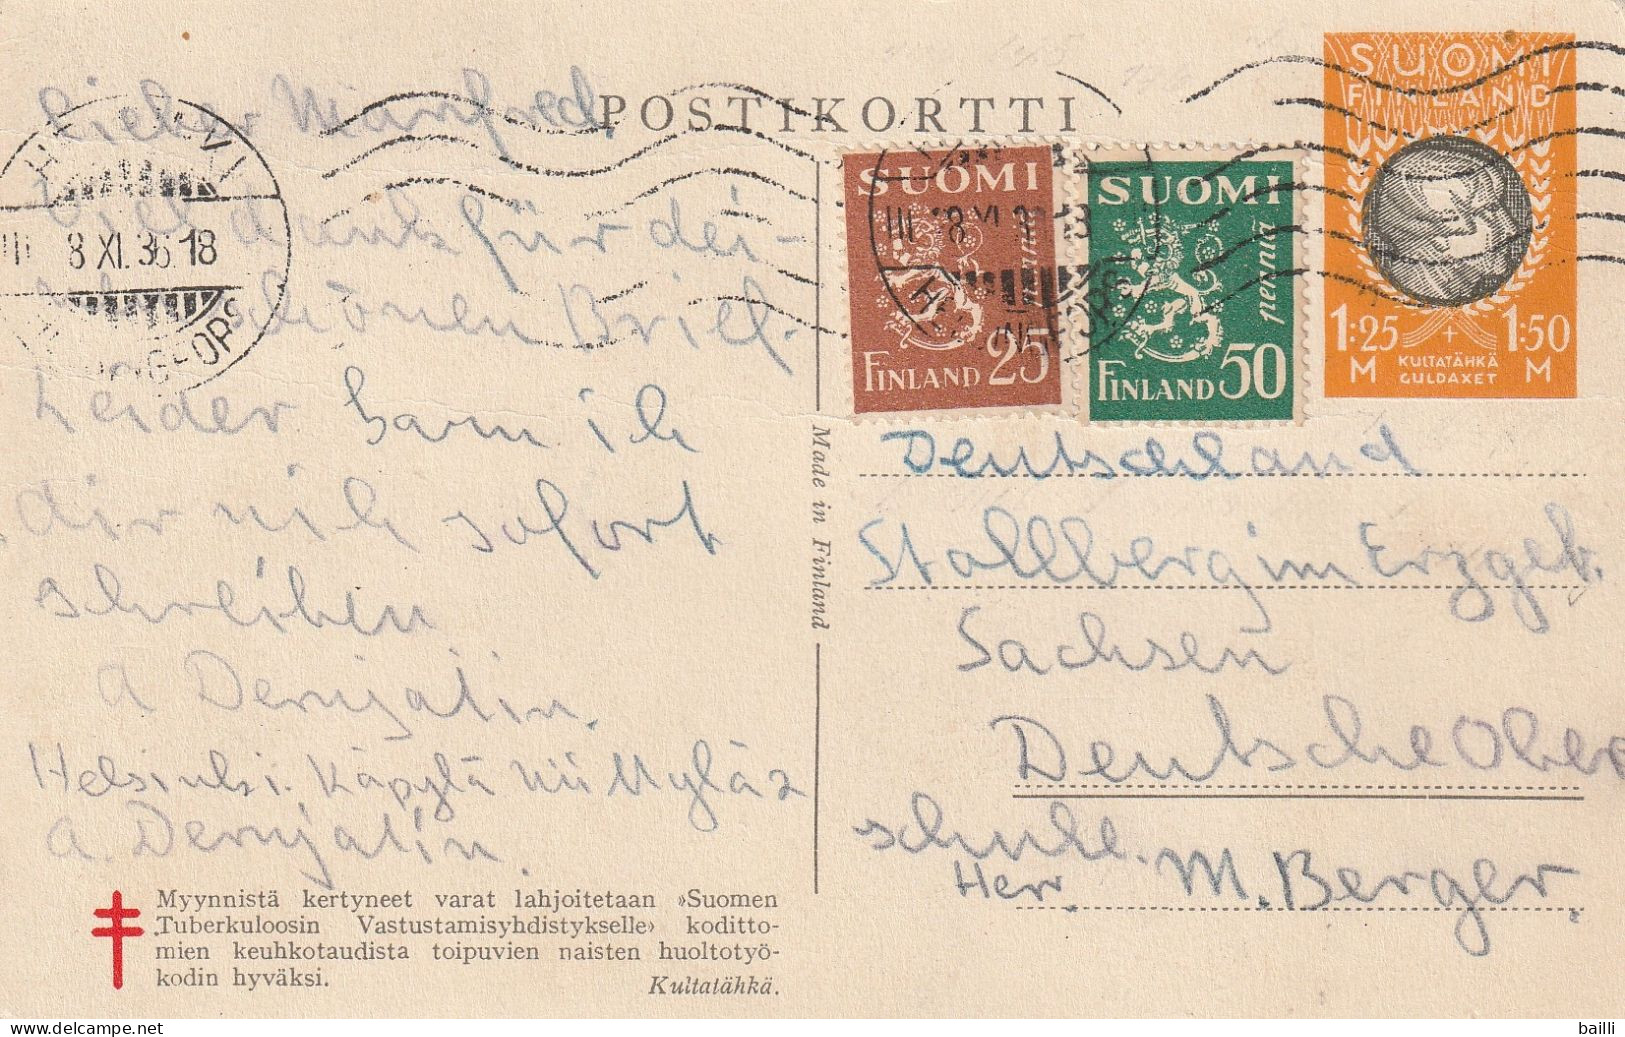 POSTIKORTTI
Lieber Manfred,
Viel dank für dei-
schönen Brief.
Leider kann ich
dir nich sofort
schreiben
A Derujatin.
Helsinki. Käpylä
A. Derujatin.
HELSINKI
III 8 XI. 36 18
HELSINGFORS
SUOMI
FINLAND 25
SUOMI
penniä
FINLAND 50
SUOMI
FINLAND
1:25 + 1:50
M KULTATÄHKÄ M
GULDAXET
Made in Finland
Deutschland
Stollberg im Erzgeb.
Sachsen
Deutsche Ober
schule.
Herr. M. Berger.
Myynnistä kertyneet varat lahjoitetaan »Suomen
Tuberkuloosin Vastustamisyhdistykselle» koditto-
mien keuhkotaudista toipuvien naisten huoltotyö-
kodin hyväksi. Kultatähkä.
www.delcampe.net
bailli